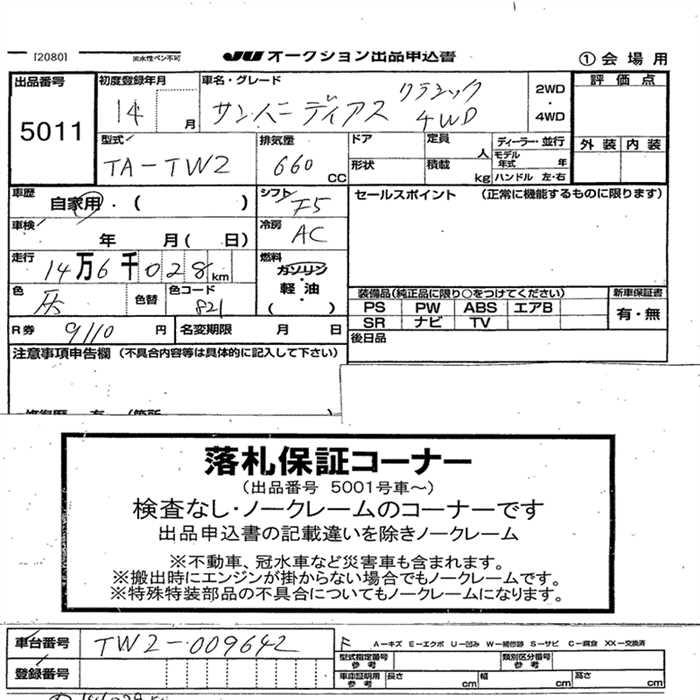 [2080]
油水性ペン不可
JU オークション出品申込書
① 会場用
出品番号
5011
初度登録年月
14 月
車名・グレード
サンバーディアス クラシック 4WD
2WD
・
4WD
評価点
外装 内装
型式
TA-TW2
排気量
660 CC
ドア
形状
定員
人
積載
kg
ディーラー・並行
モデル年式 年
ハンドル 左・右
車歴
自家用・( )
シフト
F5
セールスポイント (正常に機能するものに限ります)
車検
年 月( 日)
冷房
AC
走行
14万6千028km
燃料
ガソリン
軽油
( )
色
灰
色替
色コード
821
装備品(純正品に限り○をつけてください)
PS PW ABS エアB
SR ナビ TV
新車保証書
有・無
R券
9110 円
名変期限 月 日
後日品
注意事項申告欄 (不具合内容等は具体的に記入して下さい)
落札保証コーナー
(出品番号 5001号車〜)
検査なし・ノークレームのコーナーです
出品申込書の記載違いを除きノークレーム
※不動車、冠水車など災害車も含まれます。
※搬出時にエンジンが掛からない場合でもノークレームです。
※特殊特装部品の不具合についてもノークレームになります。
車台番号
TW2-009642
A-キズ E-エクボ U-凹み W-補修跡 S-サビ C-腐食 XX-交換済
登録番号
型式指定番号
参考
類別区分番号
参考
車庫証明用
参考
長さ cm
幅 cm
高さ cm